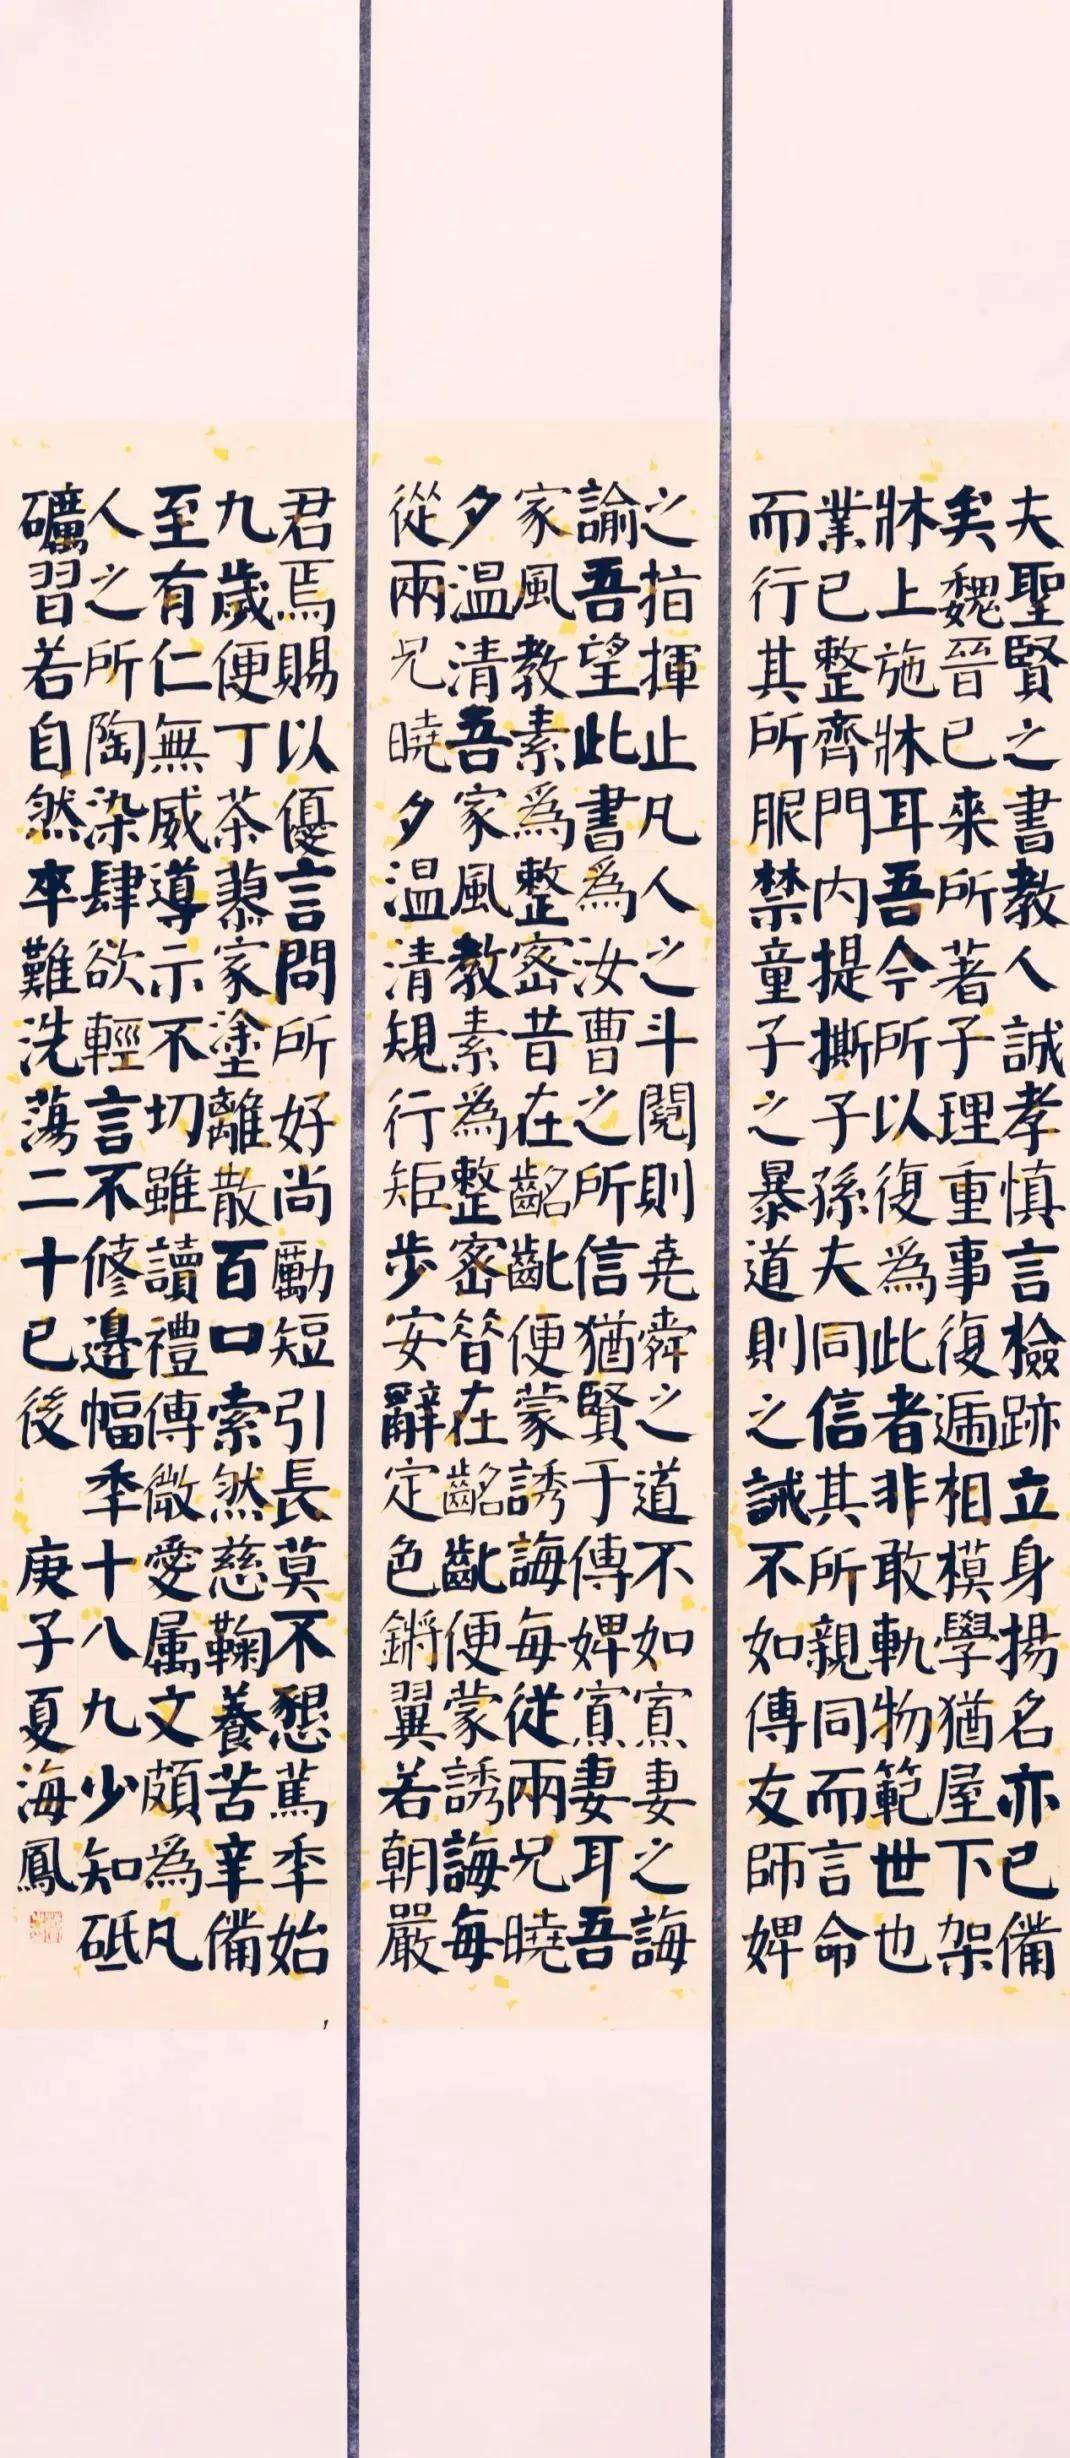 夫聖賢之書教人誠孝慎言檢跡立身揚名亦已備
矣魏晉已来所著子理重事復遞相模學猶屋下架
牀上施牀耳吾今所以復為此者非敢軌物範世也
業已整齊門内提撕子孫夫同信其所親同而言命
而行其所服禁童子之暴道則之誡不如傅友師婢
之指揮止凡人之斗䦧則堯舜之道不如寡妻之誨
諭吾望此書為汝曹之所信猶賢于傅婢寡妻耳吾
家風教素為整密昔在齠齔便蒙誘誨每從兩兄曉
夕温清吾家風教素為整密昔在齠齔便蒙誘誨每
從兩兄曉夕温清規行矩步安辭定色鏘翼若朝嚴
君焉賜以優言問所好尚勵短引長莫不懇篤年始
九歲便丁荼蓼家塗離散百口索然慈鞠養苦辛備
至有仁無威導示不切雖讀禮傳微愛属文頗為凡
人之所陶染肆欲輕言不修邊幅年十八九少知砥
礪習若自然卒難洗蕩二十已後 庚子夏海鳳